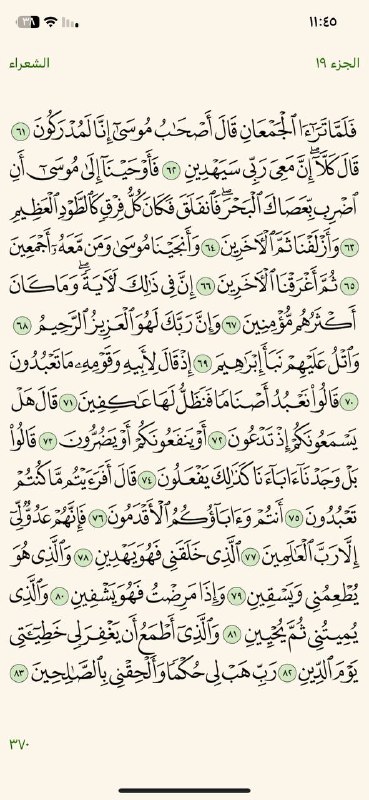 ١١:٤٥
٣٨
الجزء ١٩
الشعراء
فَلَمَّا تَرَٰٓءَا ٱلْجَمْعَانِ قَالَ أَصْحَٰبُ مُوسَىٰٓ إِنَّا لَمُدْرَكُونَ ٦١
قَالَ كَلَّآ ۖ إِنَّ مَعِىَ رَبِّى سَيَهْدِينِ ٦٢ فَأَوْحَيْنَآ إِلَىٰ مُوسَىٰٓ أَنِ
ٱضْرِب بِّعَصَاكَ ٱلْبَحْرَ ۖ فَٱنفَلَقَ فَكَانَ كُلُّ فِرْقٍ كَٱلطَّوْدِ ٱلْعَظِيمِ
٦٣ وَأَزْلَفْنَا ثَمَّ ٱلْءَاخَرِينَ ٦٤ وَأَنجَيْنَا مُوسَىٰ وَمَن مَّعَهُۥٓ أَجْمَعِينَ
٦٥ ثُمَّ أَغْرَقْنَا ٱلْءَاخَرِينَ ٦٦ إِنَّ فِى ذَٰلِكَ لَءَايَةً ۖ وَمَا كَانَ
أَكْثَرُهُم مُّؤْمِنِينَ ٦٧ وَإِنَّ رَبَّكَ لَهُوَ ٱلْعَزِيزُ ٱلرَّحِيمُ ٦٨
وَٱتْلُ عَلَيْهِمْ نَبَأَ إِبْرَٰهِيمَ ٦٩ إِذْ قَالَ لِأَبِيهِ وَقَوْمِهِۦ مَا تَعْبُدُونَ
٧٠ قَالُوا۟ نَعْبُدُ أَصْنَامًا فَنَظَلُّ لَهَا عَٰكِفِينَ ٧١ قَالَ هَلْ
يَسْمَعُونَكُمْ إِذْ تَدْعُونَ ٧٢ أَوْ يَنفَعُونَكُمْ أَوْ يَضُرُّونَ ٧٣ قَالُوا۟
بَلْ وَجَدْنَآ ءَابَآءَنَا كَذَٰلِكَ يَفْعَلُونَ ٧٤ قَالَ أَفَرَءَيْتُم مَّا كُنتُمْ
تَعْبُدُونَ ٧٥ أَنتُمْ وَءَابَآؤُكُمُ ٱلْأَقْدَمُونَ ٧٦ فَإِنَّهُمْ عَدُوٌّ لِّىٓ
إِلَّا رَبَّ ٱلْعَٰلَمِينَ ٧٧ ٱلَّذِى خَلَقَنِى فَهُوَ يَهْدِينِ ٧٨ وَٱلَّذِى هُوَ
يُطْعِمُنِى وَيَسْقِينِ ٧٩ وَإِذَا مَرِضْتُ فَهُوَ يَشْفِينِ ٨٠ وَٱلَّذِى
يُمِيتُنِى ثُمَّ يُحْيِينِ ٨١ وَٱلَّذِىٓ أَطْمَعُ أَن يَغْفِرَ لِى خَطِيٓـَٔتِى
يَوْمَ ٱلدِّينِ ٨٢ رَبِّ هَبْ لِى حُكْمًا وَأَلْحِقْنِى بِٱلصَّٰلِحِينَ ٨٣
٣٧٠